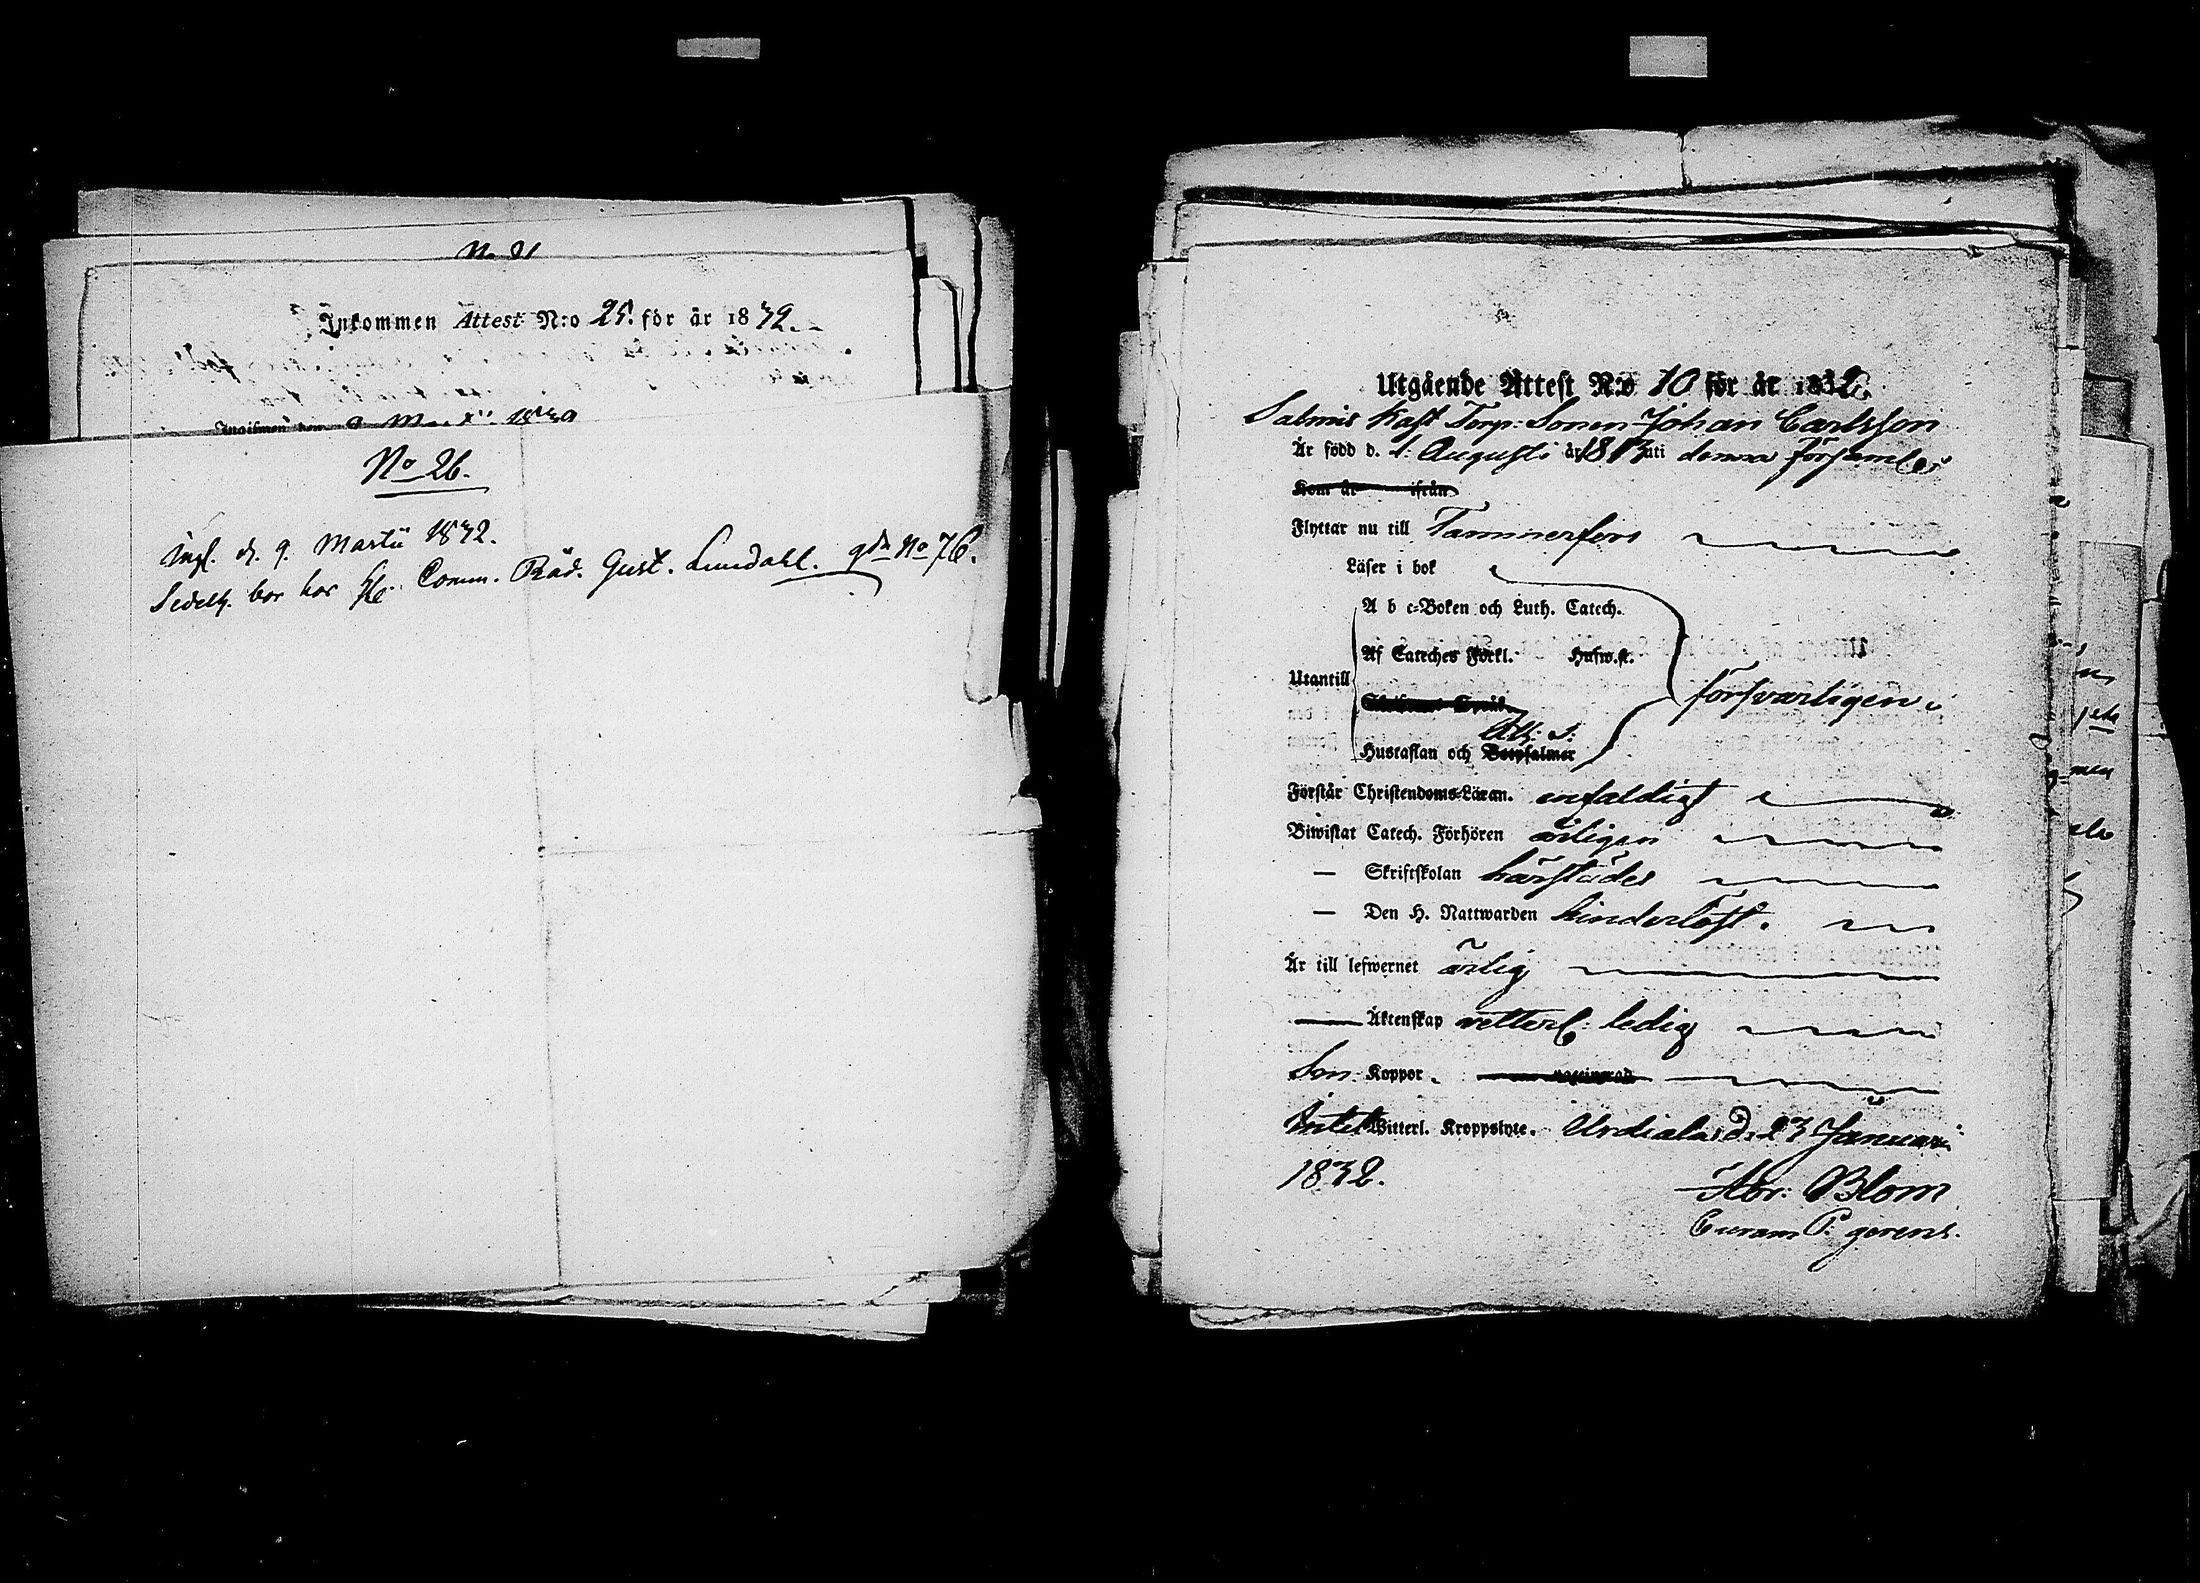 No 21
Inkommen Attest N:o 25. för år 1832.
Ingifwen den 9 Martii 1832
No 26.
Ingl. d. 9. Martii 1832.
Sedelh. bor hos H. Comm. Råd. Gust. Lundahl. gdn No 76.
Utgående Attest N:o 10 för år 1832.
Salmis Kaft Torp: Sonen Johan Carlsson
Är född d. 1: Augusti år 1813 uti denna Församl.
Kom år ifrån
Flyttar nu till Tammerfors
Läser i bok
A b c-Boken och Luth. Catech.
Af Cateches Förkl. Husw.st.
Utantill
försvarligen
Ath: S:
Hustaflan och Botpsalmer
Förstår Christendoms-Läran. enfaldigt
Biwistat Catech. Förhören årligen
— Skriftskolan härstädes
— Den H. Nattwarden hinderlöst.
Är till lefwernet ärlig
Äktenskap vetterl: ledig
Koppor.
Intet Witterl. Kroppslyte. Urdiala d. 23 Januari
1832.
Abr: Blom
Curam P. gerens.